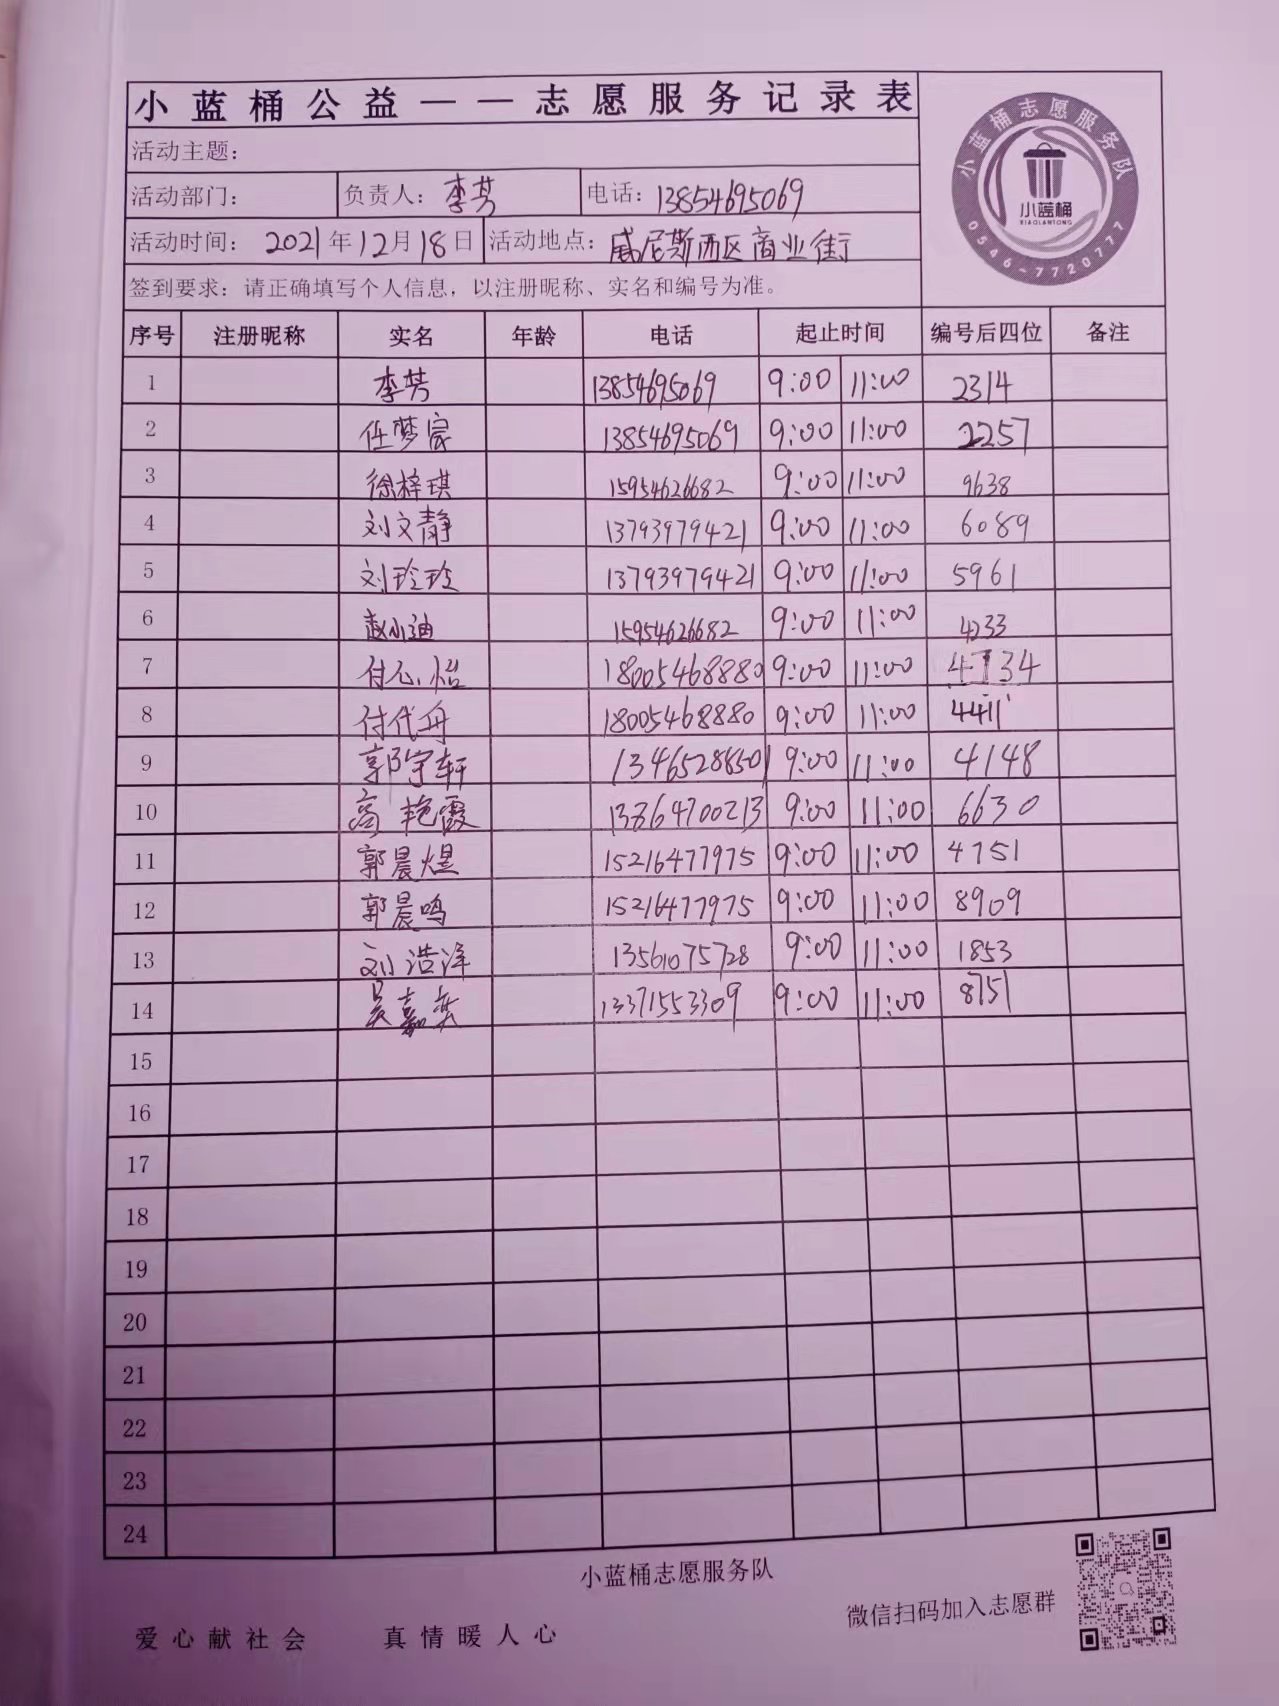 小蓝桶公益——志愿服务记录表
小蓝桶志愿服务队
小蓝桶
XIAOLANTONG
0546-7720777
活动主题：
活动部门： 负责人：李芳 电话：13854695069
活动时间：2021年12月18日 活动地点：威尼斯西区商业街
签到要求：请正确填写个人信息，以注册昵称、实名和编号为准。
序号 注册昵称 实名 年龄 电话 起止时间 编号后四位 备注
1 李芳 13854695069 9:00 11:00 2314
2 任梦宸 13854695069 9:00 11:00 2257
3 徐梓琪 15954626682 9:00 11:00 9638
4 刘文静 13793979421 9:00 11:00 6089
5 刘玲玲 13793979421 9:00 11:00 5961
6 赵小迪 15954626682 9:00 11:00 4233
7 付心怡 18005468880 9:00 11:00 4734
8 付代舟 18005468880 9:00 11:00 4411
9 郭宇轩 13465288501 9:00 11:00 4148
10 高艳霞 13864700213 9:00 11:00 6630
11 郭晨煜 15216477975 9:00 11:00 4751
12 郭晨鸣 15216477975 9:00 11:00 8909
13 刘浩洋 13561075728 9:00 11:00 1853
14 吴嘉奕 13371553309 9:00 11:00 8751
15
16
17
18
19
20
21
22
23
24
小蓝桶志愿服务队
微信扫码加入志愿群
爱心献社会 真情暖人心